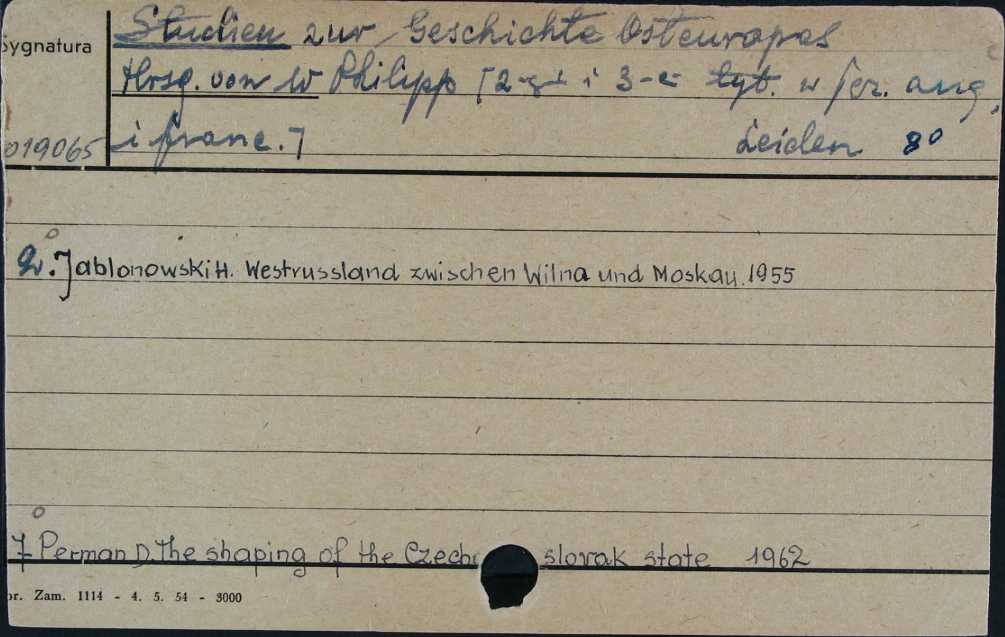 Sygnatura
Studien zur Geschichte Osteuropas
Hrsg. von W Philipp [2-gi i 3-ci tyt. w jęz. ang,
019065 i franc.] Leiden 8°
2. Jablonowski H. Westrussland zwischen Wilna und Moskau. 1955
7 Perman D. The shaping of the Czecho slovak state 1962
or. Zam. 1114 - 4. 5. 54 - 3000